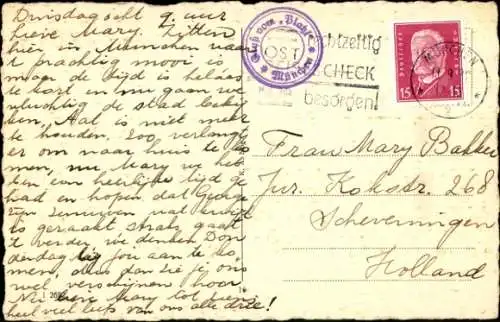 Dinsdagocht 9 uur
Lieve Mary. Zitten
hier in München waar
't prachtig mooi is
maar de tijd is helaas
te kort en nu gaan we
vluchtig de stad
Aal is niet meer
te houden. Zoo verlangt
er om naar huis te ko
men, nu Mary we heb
ben een heerlijke tijd ge
had en hopen dat
zijn zenuwen wat
is geraakt straks gaat
't verder, we denken Don
derdag bij jou aan te ko
men, dus dan zie je ons
wel verschijnen hoor
Nu lieve Mary tot ziens
heel veel liefs van ons alle drie!
Gruß vom „Platzl"
OST
München
chtzeitig
CHECK
besorgen!
DEUTSCHES REICH
15 15
MÜNCHEN
Frau Mary Bakker
Jur. Kokstr. 268
Scheveningen
Holland